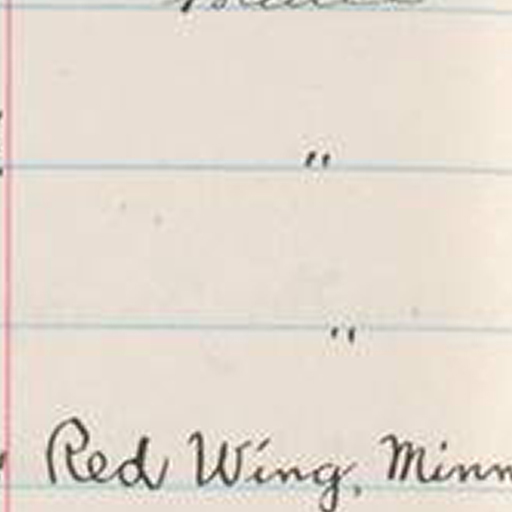 "
"
Red Wing, Minn